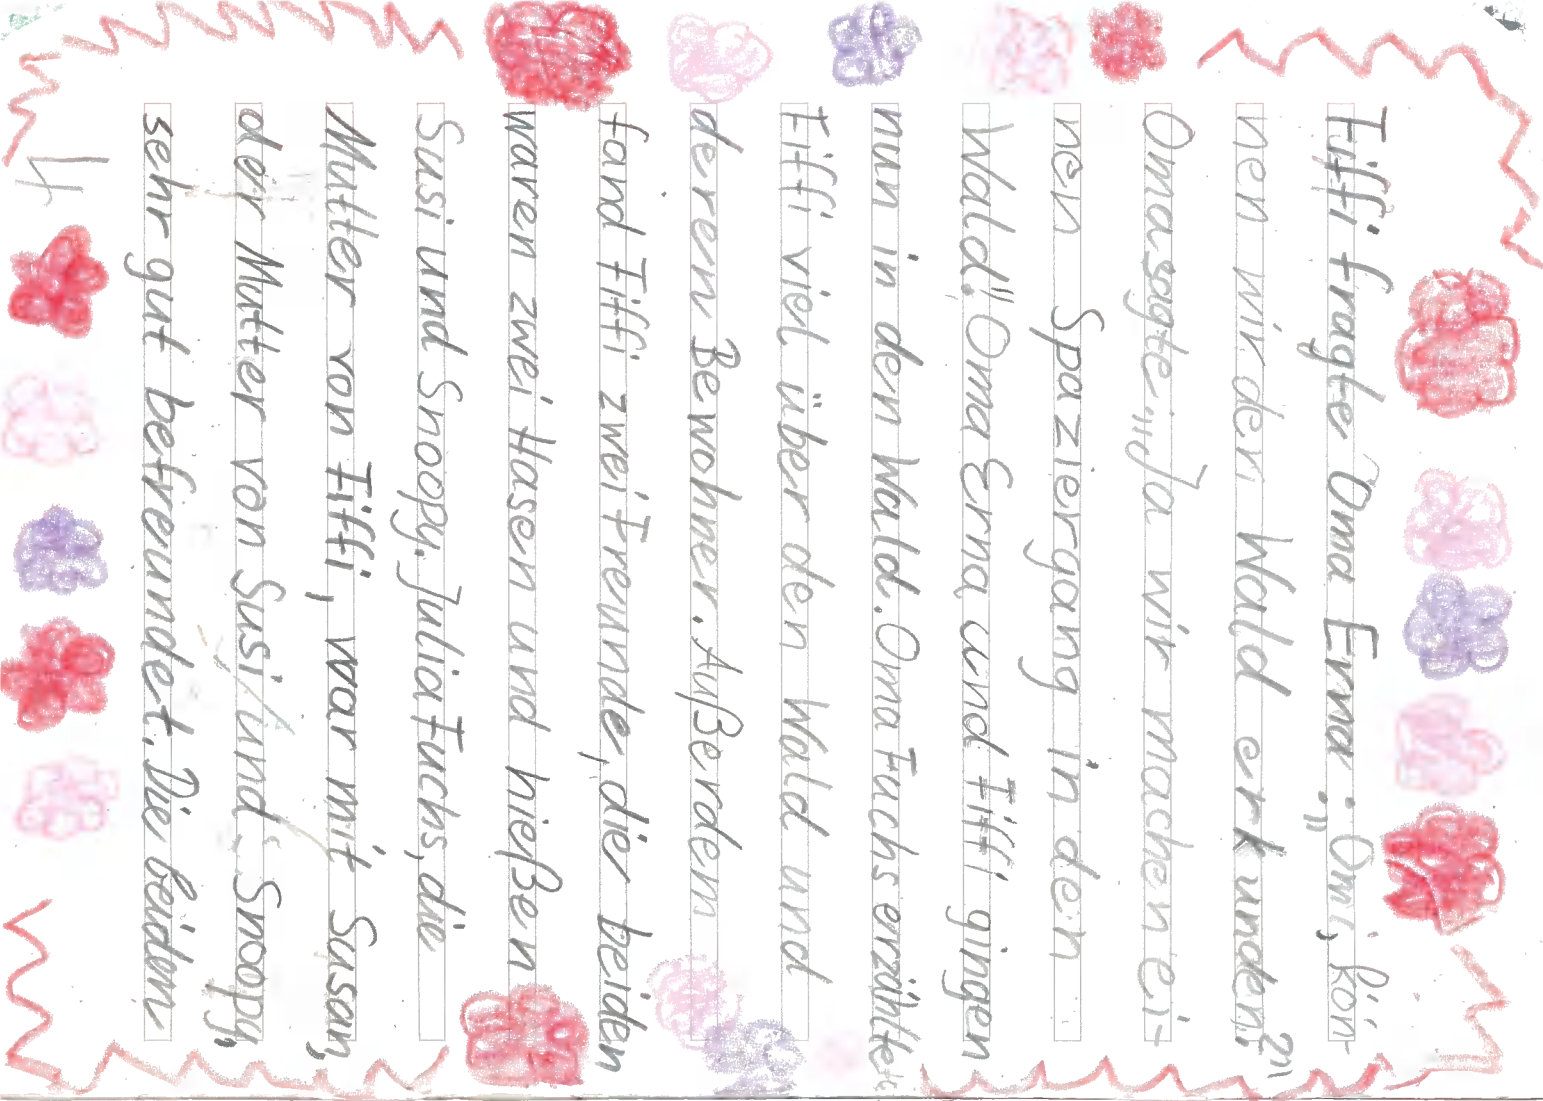 Fiffi fragte Oma Erna: „Omi, kön-
nen wir den Wald erkunden?"
Oma sagte: „Ja wir machen ei-
nen Spaziergang in den
Wald." Oma Erna und Fiffi gingen
nun in den Wald. Oma Fuchs erzählte
Fiffi viel über den Wald und
deren Bewohner. Außerden
fand Fiffi zwei Freunde, dier beiden
waren zwei Hasen und hießen
Susi und Snoopy. Julia Fuchs, die
Mutter von Fiffi, war mit Susan,
der Mutter von Susi und Snoopy,
sehr gut befreundet. Die beiden
4